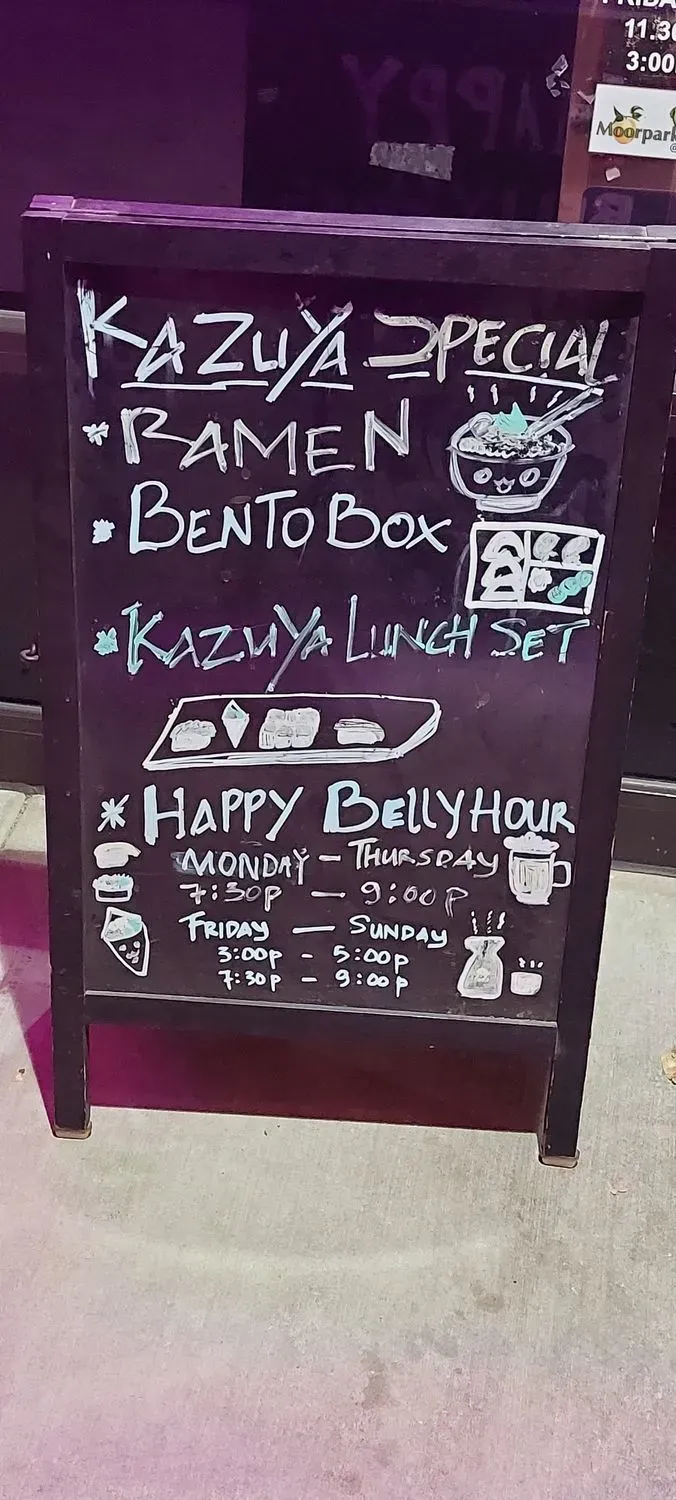 FRIDA
11.30
3:00
Moorpark
KAZUYA SPECIAL
* RAMEN
* BENTO BOX
* KAZUYA LUNCH SET
* HAPPY BELLY HOUR
MONDAY - THURSDAY
7:30P - 9:00P
FRIDAY - SUNDAY
3:00P - 5:00P
7:30P - 9:00P